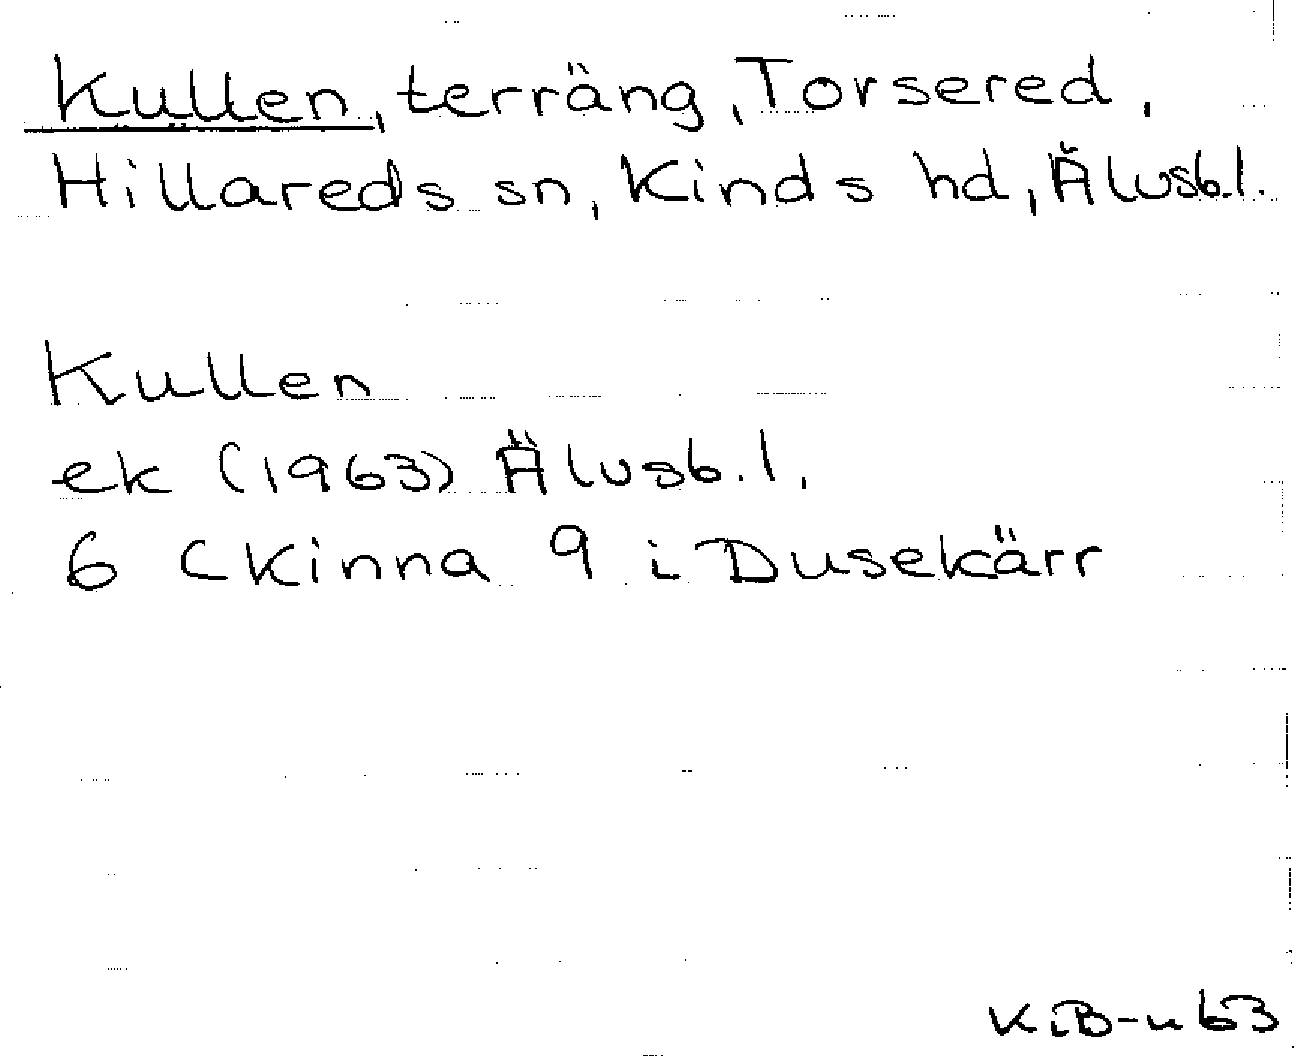 Kullen, terräng, Torsered,
Hillareds sn, Kinds hd, Älvsb.l.
Kullen
ek (1963) Älvsb.l.
6 C Kinna 9 i Dusekärr
KiB-u 63